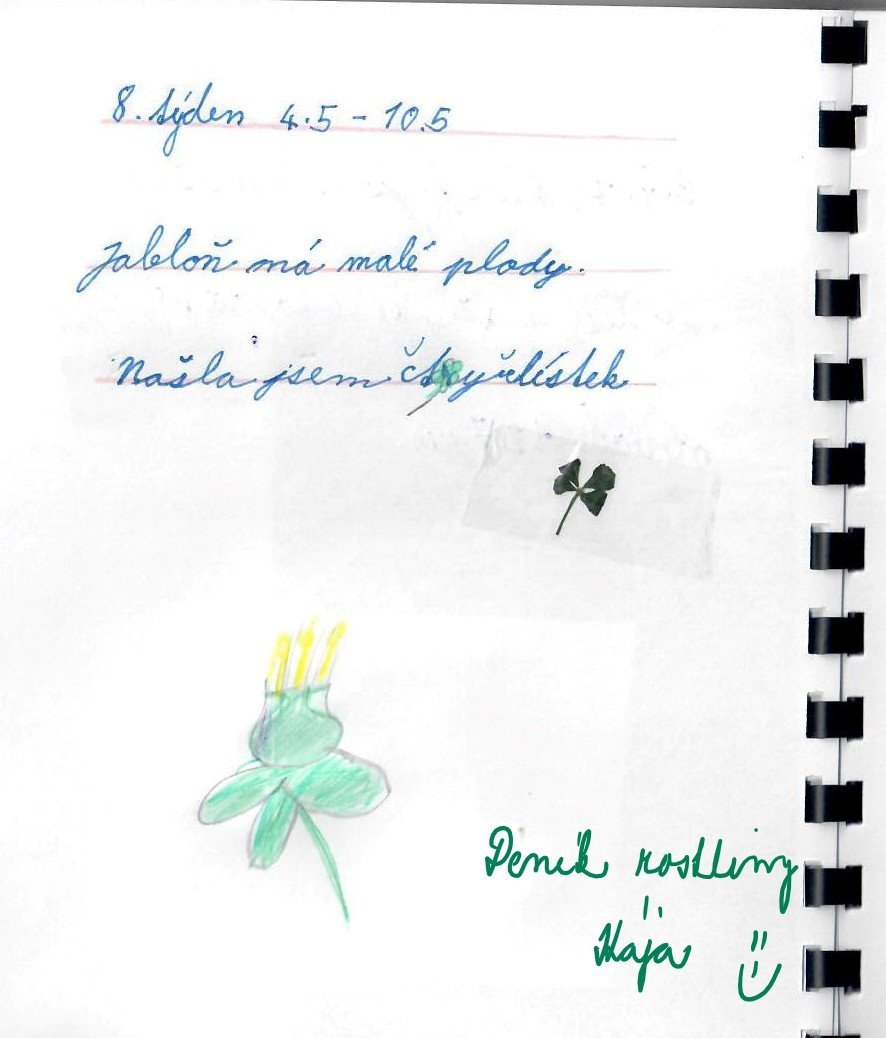 8. týden 4.5 - 10.5
Jabloň má malé plody.
Našla jsem čtyřlístek
Deník rostliny
Kája